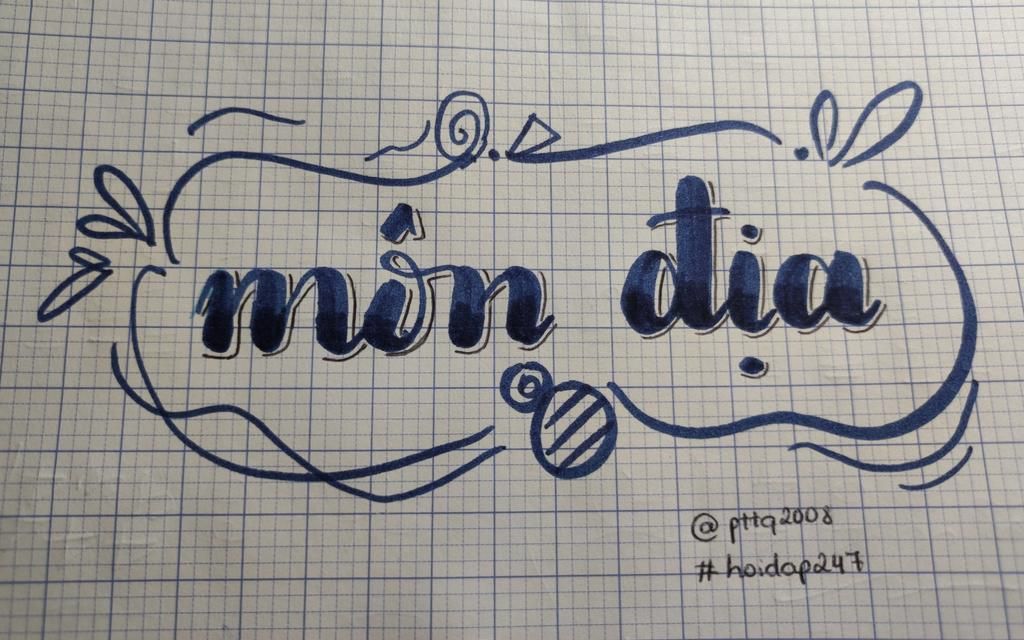 môn địa
@pttq2008
#hoidap247